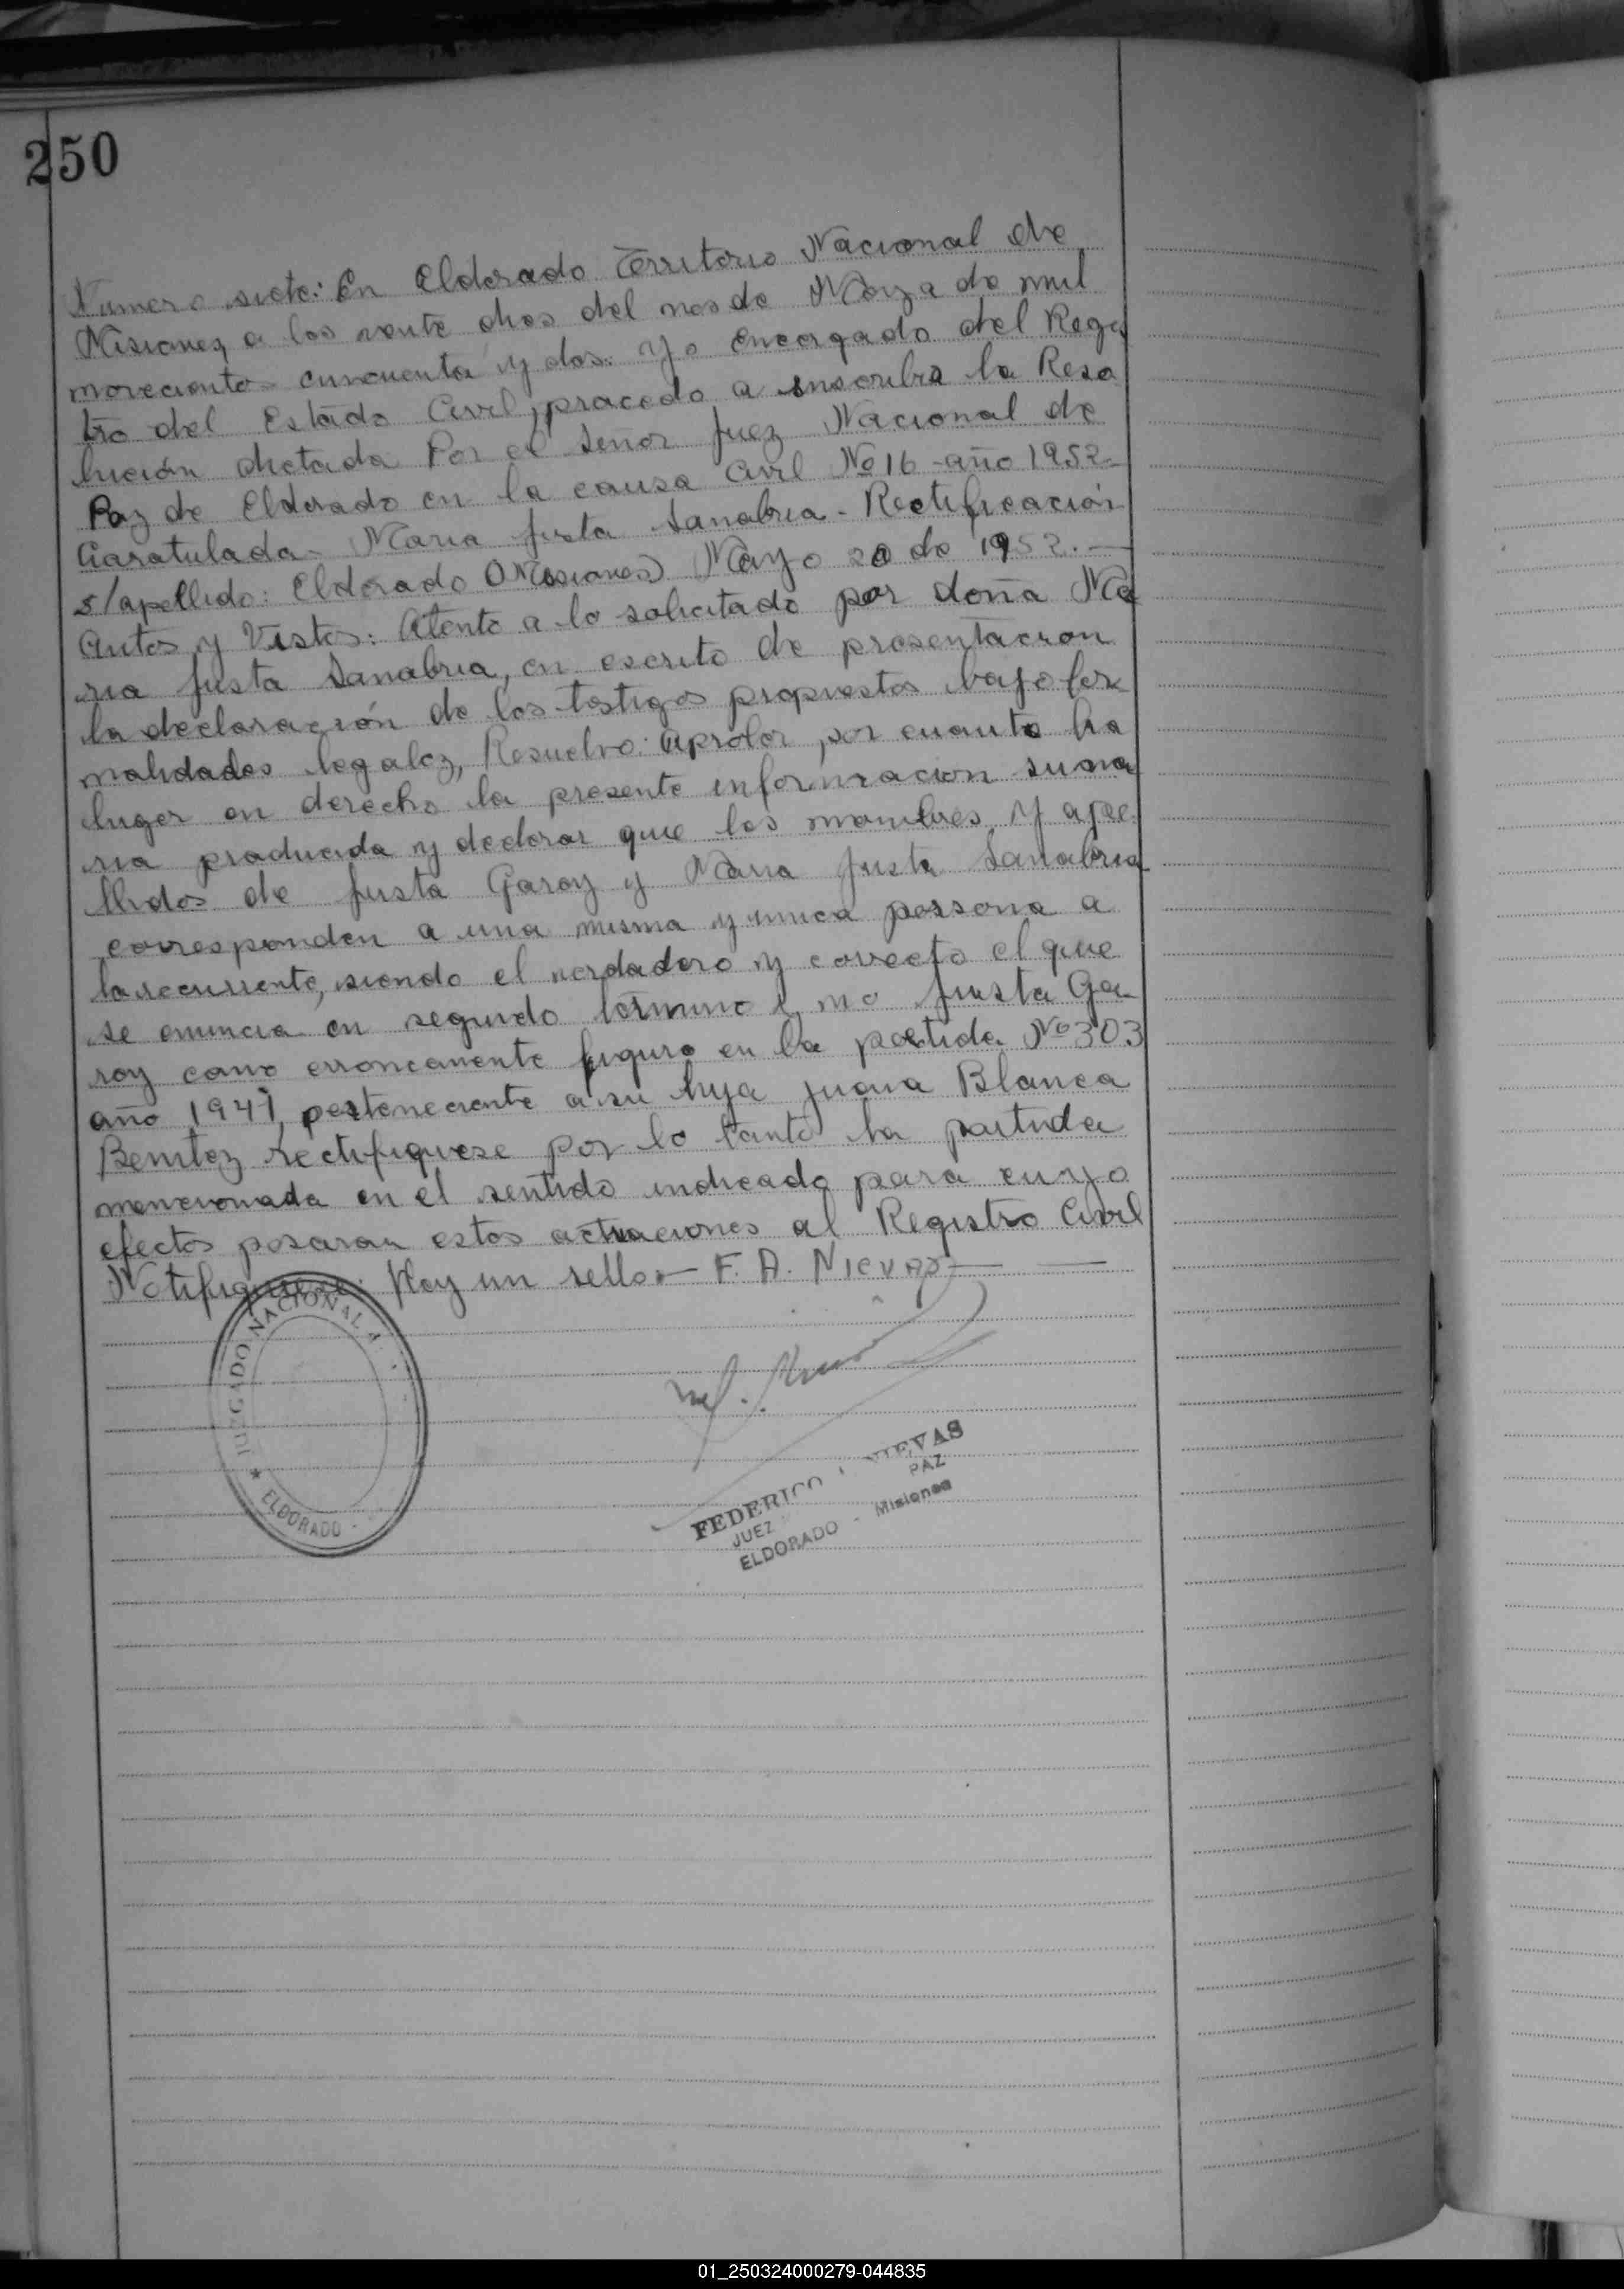 250
Numero siete: En Eldorado Territorio Nacional de
Misiones a los veinte dias del mes de Mayo de mil
novecientos cincuenta y dos: Yo Encargado del Regis
tro del Estado Civil, procedo a inscribir la Reso
lución dictada Por el Señor Juez Nacional de
Paz de Eldorado en la causa Civil No 16 - año 1952-
Caratulada - Maria Justa Sanabria - Rectificación
s/apellido: Eldorado (Misiones) Mayo 20 de 1952.—
Autos y Vistos: Atento a lo solicitado por doña Ma
ria Justa Sanabria, en escrito de presentacion
la declaración de los testigos propuestos bajo for
malidades legales, Resuelvo: Aprobar, por cuanto ha
lugar en derecho la presente informacion suma
ria producida y declarar que los nombres y ape-
llidos de Justa Garay y Maria Justa Sanabria
corresponden a una misma y unica persona a
la recurrente, siendo el verdadero y correcto el que
se enuncia en segundo término y no Justa Ga-
ray como erroneamente figura en la partida No 303
año 1947, perteneciente a su hija Juana Blanca
Benitez rectifiquese por lo tanto la partida
mencionada en el sentido indicado para cuyo
efectos pasaran estos actuaciones al Registro Civil
Notifiquese. Hay un sello — F. A. Nievas — —
JUZGADO NACIONAL
★ ELDORADO -
FEDERICO NIEVAS
JUEZ PAZ
ELDORADO - Misiones
01_250324000279-044835